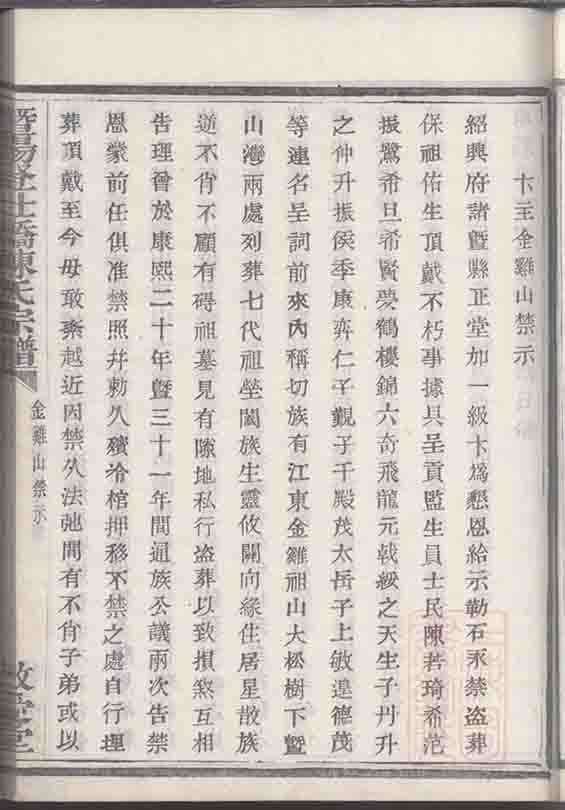 卞主金雞山禁示
紹興府諸暨縣正堂加一級卞爲懇恩給示勒石永禁盜葬
保祖佑生頂戴不朽事據具呈貢監生員士民陳若琦希范
振鷺希旦希賢夢鶴櫻錦六奇飛龍元戟綬之天生子丹升
之仲升振侯季康弈仁子觀子千殿茂太岳子上敏遑德茂
等連名呈詞前來內稱切族有江東金雞祖山大松樹下暨
山灣兩處列葬七代祖塋闔族生靈攸關向緣住居星散族
逆不肖不顧有碍祖墓見有隙地私行盜葬以致損煞互相
告理曾於康熙二十年暨三十一年間通族公議兩次告禁
恩蒙前任俱准禁照幷勅久殯冷棺押移不禁之處自行理
葬頂戴至今毋敢紊越近因禁久法弛間有不肖子弟或以
暨陽登仕橋陳氏宗譜
金雞山禁示